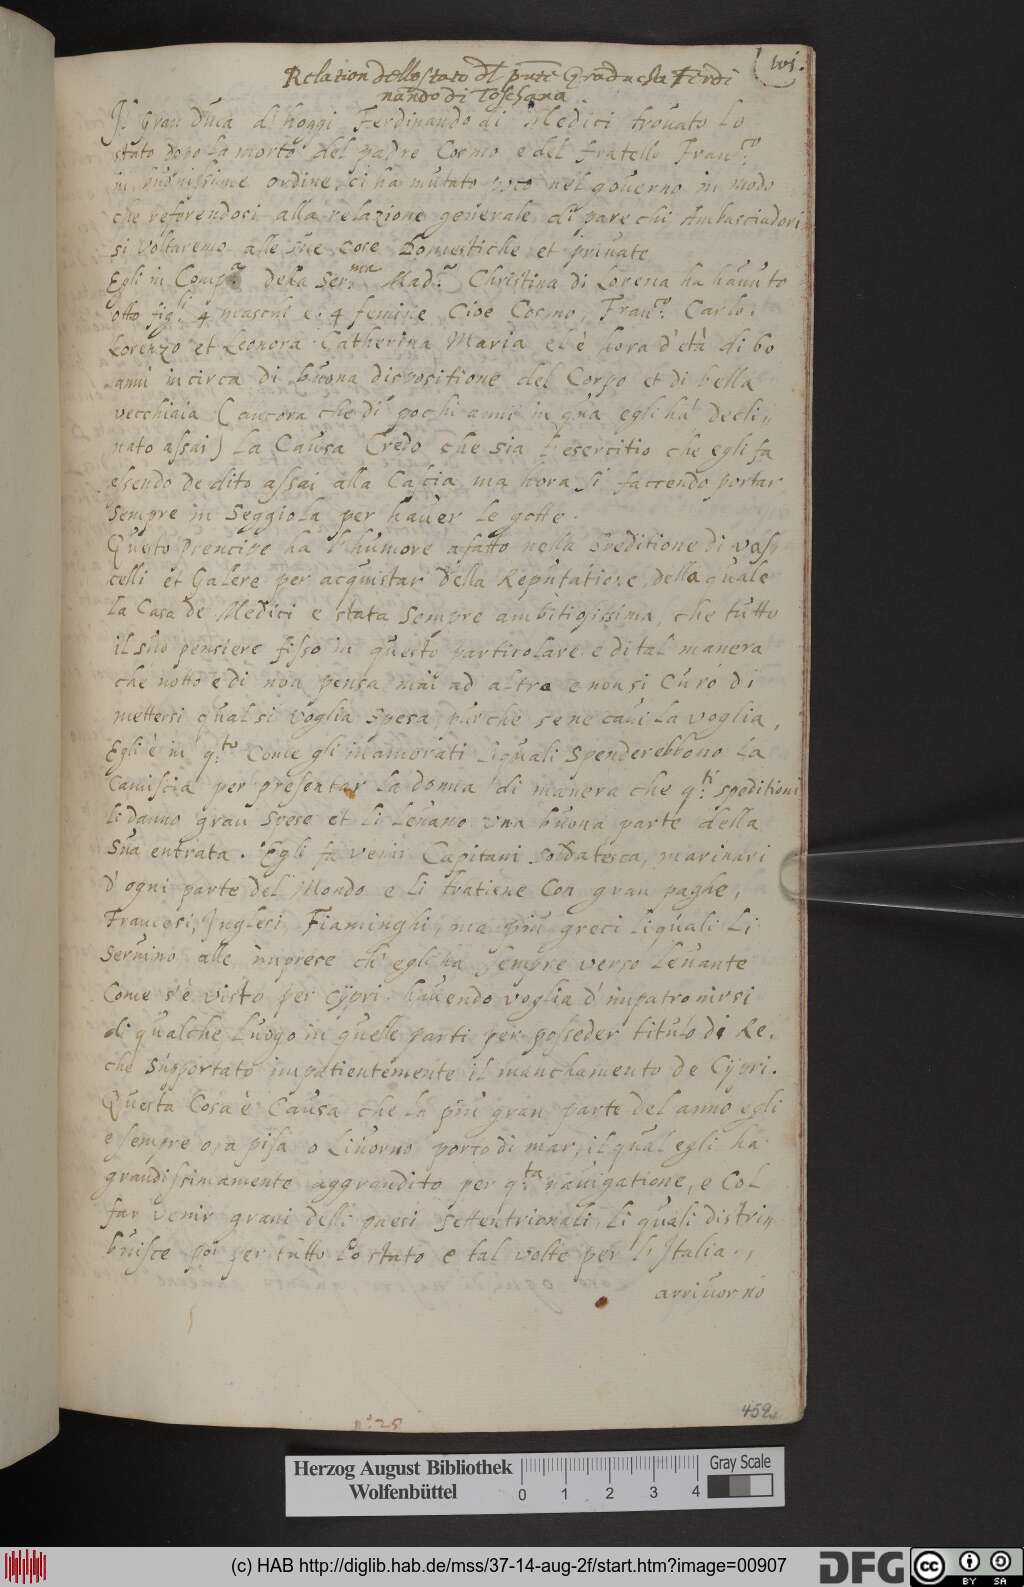 101.
Relation dello stato dl pnte Gran ducha Ferdi
nando di Toschana
Il gran Duca d'hoggi Ferdinando di Medici trouato lo
stato dopo la morte del padre Cosmo e del fratello Fran.co
in buonissime ordine, ci ha mutato poco nel gouerno in modo
che referendosi alla relazione generale di pare chi Ambasciadori
si voltaremo alle sue cose Domestiche et priuate
Egli in Comp.a dela Ser.ma Mad.a Christina di Lorena ha hauuto
otto figl.i 4 maschi e 4 femine Cioe Cosmo, Fran.co Carlo.
Lorenzo et Leonora Catherina Maria et è hora d'età di 60
anni incirca di buona dispositione del Corpo et di bella
vecchiaia (ancora che di pochi anni in qua egli hà decli„
nato assai) la Causa Credo che sia l'esercitio che egli fa
esendo dedito assai alla Cascia ma hora si faccendo portar
sempre in Seggiola per hauer le gotte.
Questo Prencipe ha l'humore afatto nella speditione di vas„
celli et Galere per acquistar della Reputatione, della quale
la Casa de Medici e stata sempre ambitiosissima, che tutto
il suo pensiere fisso in questo particolare e di tal manera
che notto e di non pensa mai ad altro e non si Curò di
mettersi qual si voglia spesa purche se ne caui la voglia,
Egli è in q.to Come gli inamorati liquali spenderebbono la
Camiscia per presentar la donna di manera che q.ti speditioni
li danno gran spese et li leuano una buona parte della
sua entrata. Egli fa venir Capitani soldatesca, marinari
d'ogni parte del Mondo e li tratiene con gran paghe,
Francesi, Inglesi, Fiaminghi, ma piu greci liquali li
seruino alle imprese ch'egli ha sempre verso leuante
Come s'è visto per Cijpri. hauendo voglia d'impatronirsi
di qualche luogo in quelle parti per posseder titulo di Re.
che supportato impatientemente il manchamento de Cijpri.
Questa Cosa è Causa che la piu gran parte del anno egli
e sempre o, a pisa o Liuorno porto di mar, il qual egli ha
grandissimamente aggrandito per q.ta nauigatione, e Col
far venir grani delli paesi settentrionali li quali distri„
buisce poi per tutto lo stato e tal volte per l'Italia.,
arriuorno
n.° 28
459
Herzog August Bibliothek
Wolfenbüttel
0 1 2 3 4
Gray Scale
(c) HAB http://diglib.hab.de/mss/37-14-aug-2f/start.htm?image=00907
DFG
cc BY SA